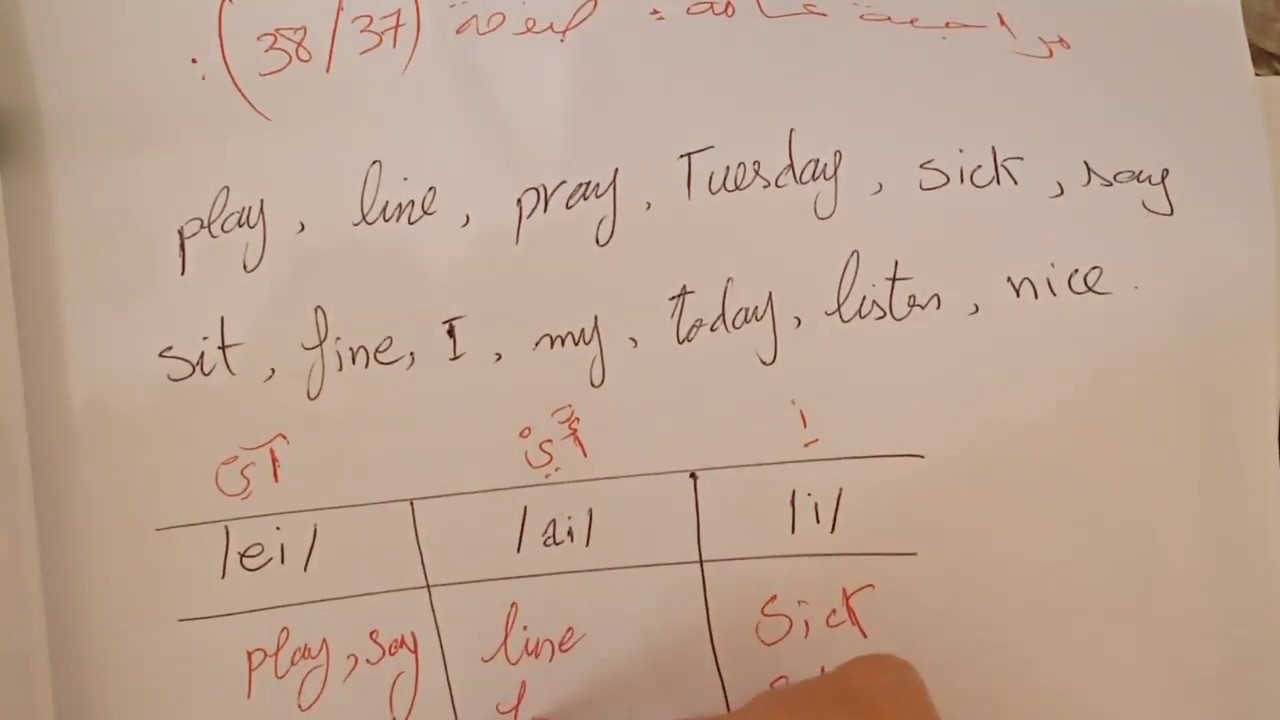 مراجعة عامة: لبعدة (38/37):
play, line, pray, Tuesday, sick, say
sit, fine, I, my, today, listen, nice.
/ei/ /ai/ /i/
play, say line sick